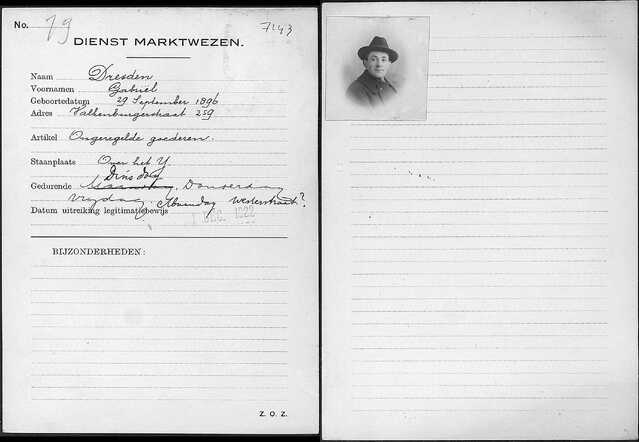 No. 79 7143
DIENST MARKTWEZEN.
Naam Dresden
Voornamen Gabriel
Geboortedatum 29 September 1896
Adres Valkenburgerstraat 259
Artikel Ongeregelde goederen.
Staanplaats Over het Y.
Dinsdag
Gedurende Maandag, Donderdag
Vrijdag. Maandag Westerstraat?
Datum uitreiking legitimatiebewijs 1 DEC. 1922
BIJZONDERHEDEN:
Z. O. Z.